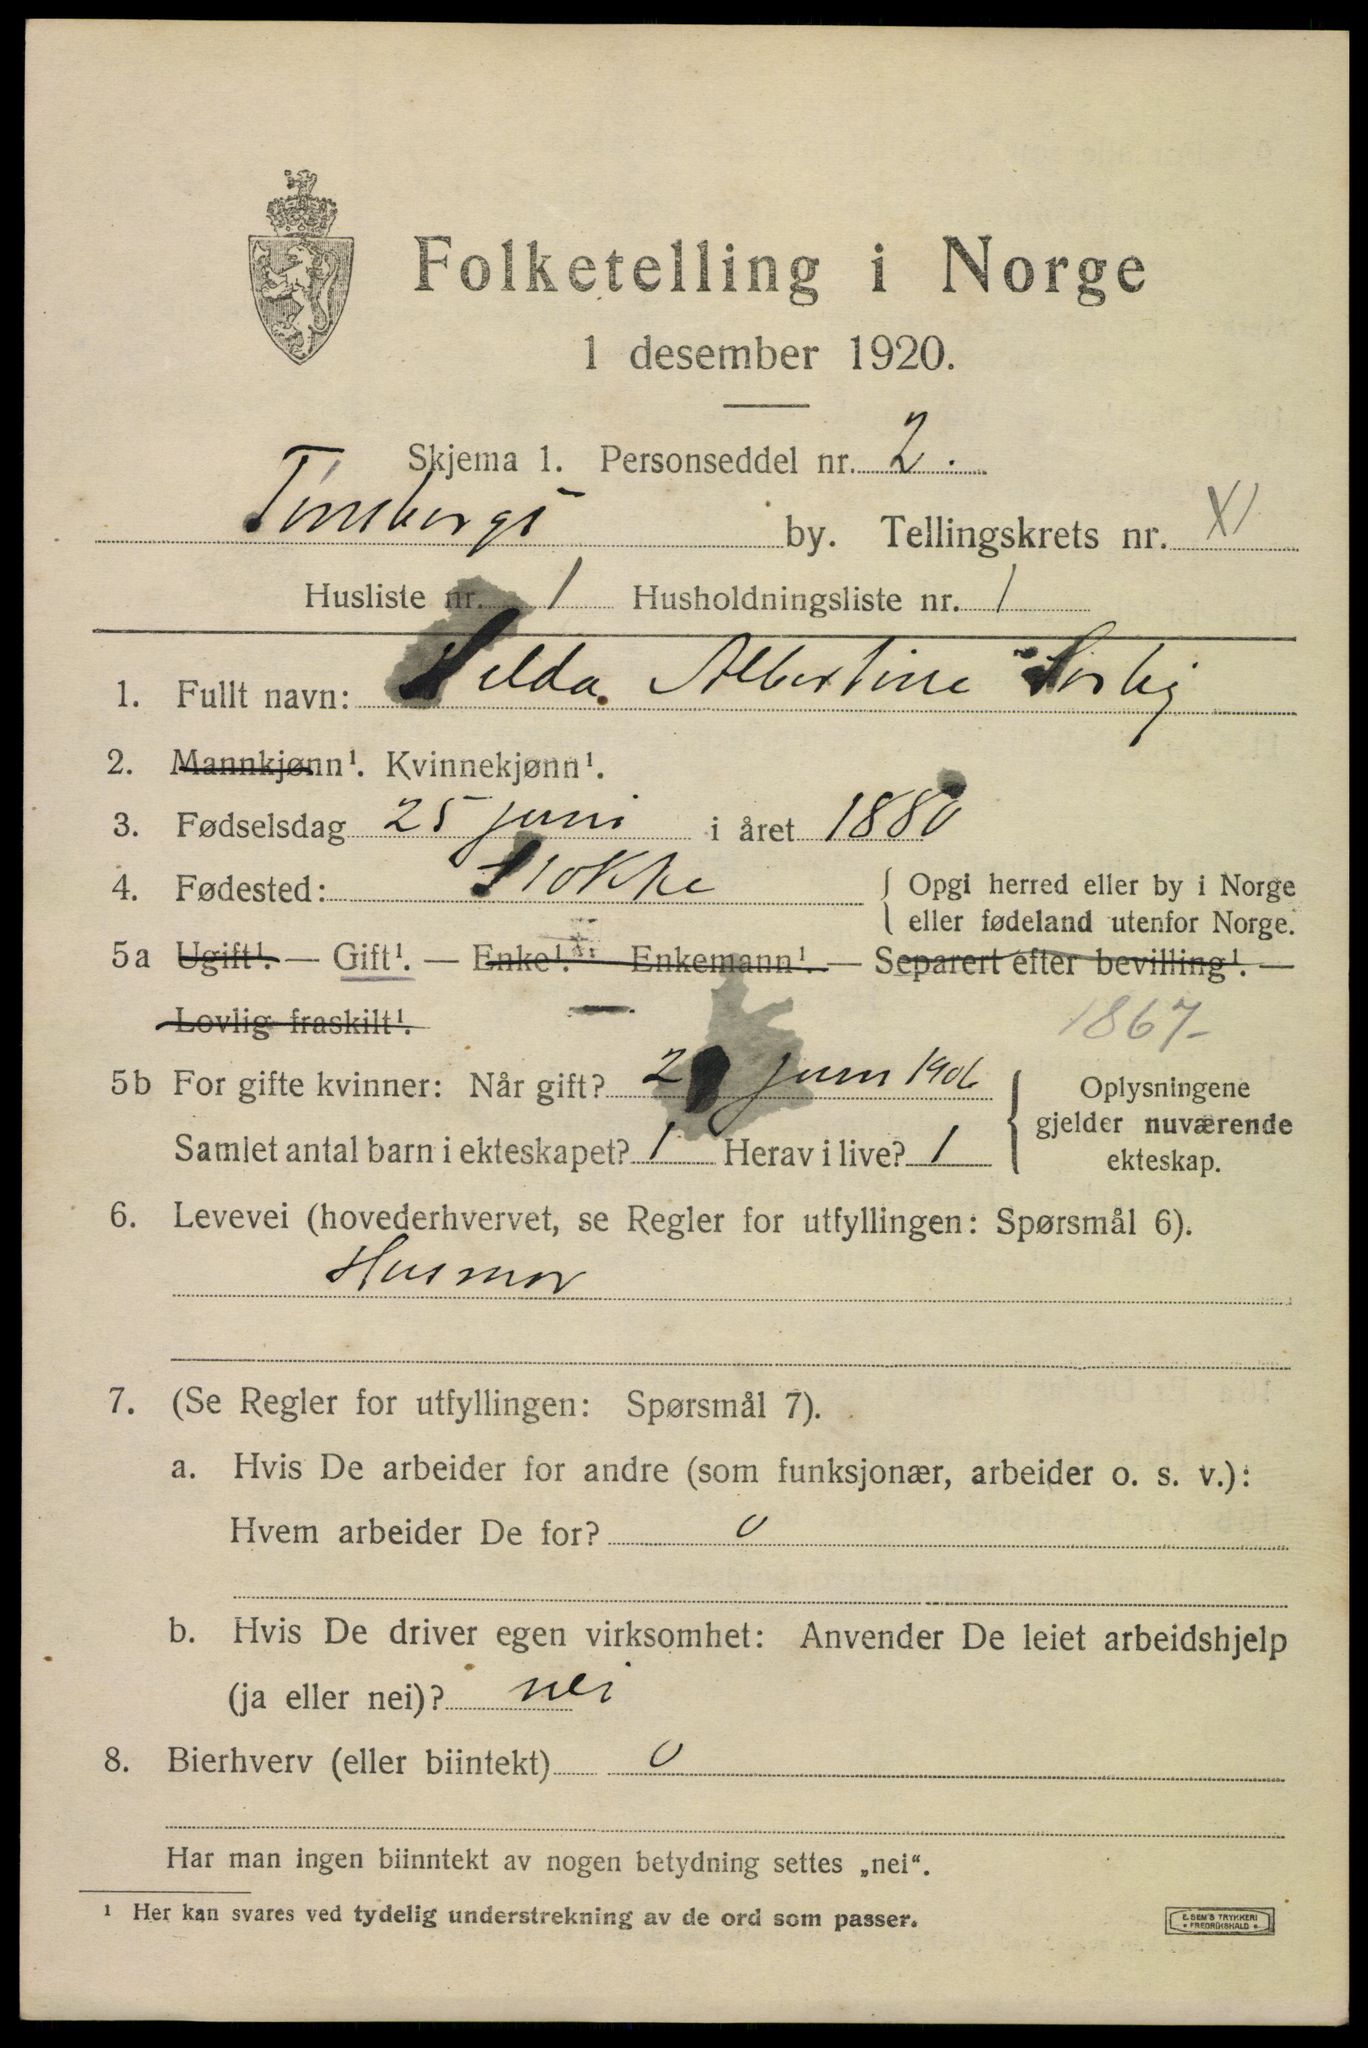 Folketelling i Norge
1 desember 1920.
Skjema 1. Personseddel nr. 2.
Tønsbergs by. Tellingskrets nr. XI
Husliste nr. 1 Husholdningsliste nr. 1
1. Fullt navn: Albertine
2. Mannkjønn¹. Kvinnekjønn¹.
3. Fødselsdag 25 juni i året 1880
4. Fødested: Stokke { Opgi herred eller by i Norge
eller fødeland utenfor Norge.
5a Ugift¹. — Gift¹. — Enke¹. — Enkemann¹. — Separert efter bevilling¹. —
Lovlig fraskilt¹.
1867-
5b For gifte kvinner: Når gift? juni 1906 { Oplysningene
gjelder nuværende
Samlet antal barn i ekteskapet? 1 Herav i live? 1 ekteskap.
6. Levevei (hovederhvervet, se Regler for utfyllingen: Spørsmål 6).
Husmor
7. (Se Regler for utfyllingen: Spørsmål 7).
a. Hvis De arbeider for andre (som funksjonær, arbeider o. s. v.):
Hvem arbeider De for? 0
b. Hvis De driver egen virksomhet: Anvender De leiet arbeidshjelp
(ja eller nei)? nei
8. Bierhverv (eller biintekt) 0
Har man ingen biinntekt av nogen betydning settes „nei".
¹ Her kan svares ved tydelig understrekning av de ord som passer.
E. SEM'S TRYKKERI
• FREDRIKSHALD •